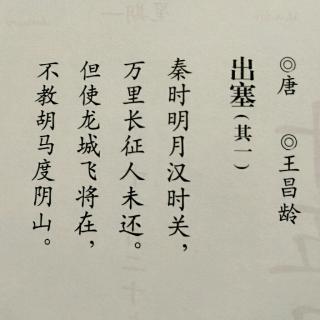 ◎唐 ◎王昌龄
出塞(其一)
秦时明月汉时关，
万里长征人未还。
但使龙城飞将在，
不教胡马度阴山。